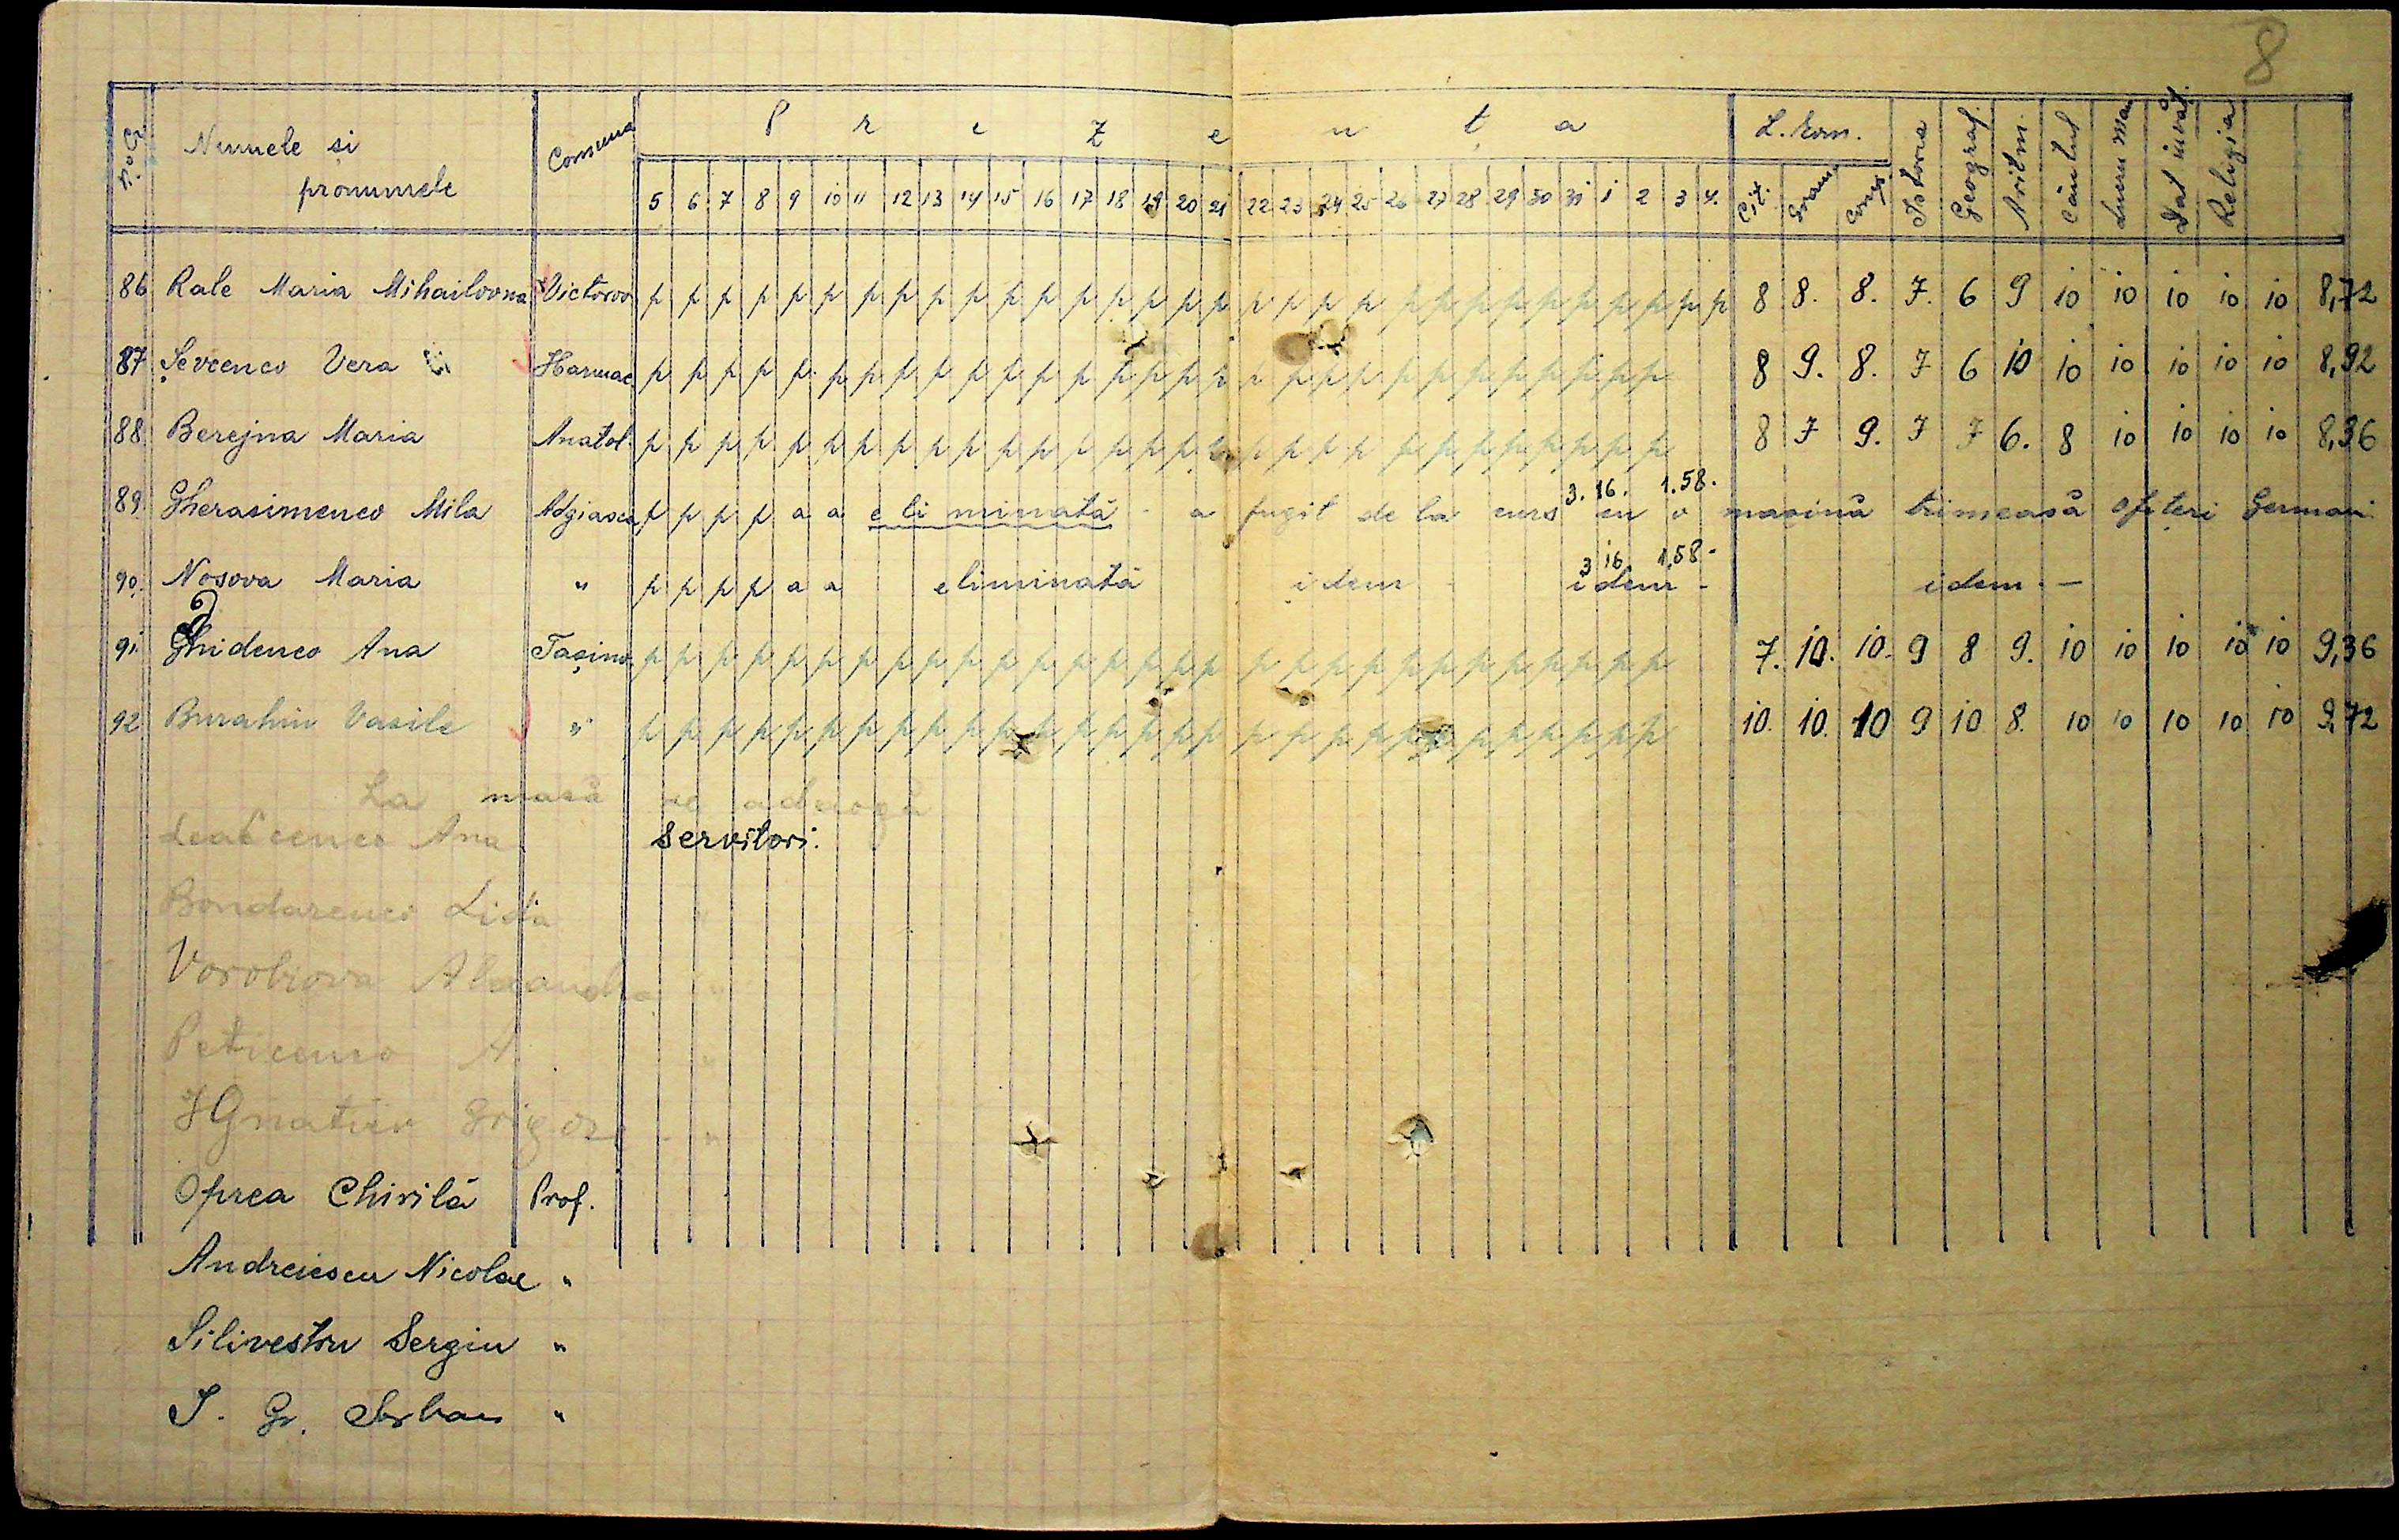 8
No Cr. Numele si Comuna P r e z e n ț a L. Rom. Istoria Geograf. Aritm. Cântul Lucru Man Dat. învăț. Religia
pronumele 5 6 7 8 9 10 11 12 13 14 15 16 17 18 19 20 21 22 23 24 25 26 27 28 29 30 31 1 2 3 4. Cit. Gram. Comp.
86 Rale Maria Mihailovna Victorov p p p p p p p p p p p p p p p p p p p p p p p p p p p p p p p 8 8. 8. 7. 6 9 10 10 10 10 10 8,72
87 Șevcenco Vera Harmac p p p p p p p p p p p p p p p p p p p p p p p p p p p p p 8 9. 8. 7 6 10 10 10 10 10 10 8,92
88. Berejna Maria Anatol. p p p p p p p p p p p p p p p p p p p p p p p p p p p p p 8 7 9. 7 7 6. 8 10 10 10 10 8,36
3. 16. 1.58.
89. Gherasimenco Mila Adgiasca p p p p a a eliminată - a fugit de la curs cu o mașină trimeasă ofițeri Germani.
3 16 1.58-
90. Nosova Maria " p p p p a a eliminată idem - idem - idem. —
91. Ghidenco Ana Tașino p p p p p p p p p p p p p p p p p p p p p p p p p p p p p 7. 10. 10. 9 8 9. 10 10 10 10 10 9,36
92 Burahin Vasile " p p p p p p p p p p p p p p p p p p p p p p p p p p p p p 10. 10. 10 9 10 8. 10 10 10 10 10 9,72
La masă se adaogă
Ana Servitori.
Bondarenco Lida "
Vorobiova Alexandra "
Peticenco A. "
IGnatiev Grigore - "
Oprea Chirilă Prof.
Andreiescu Nicolae "
Silivestru Sergiu "
S. Gr. Serban "